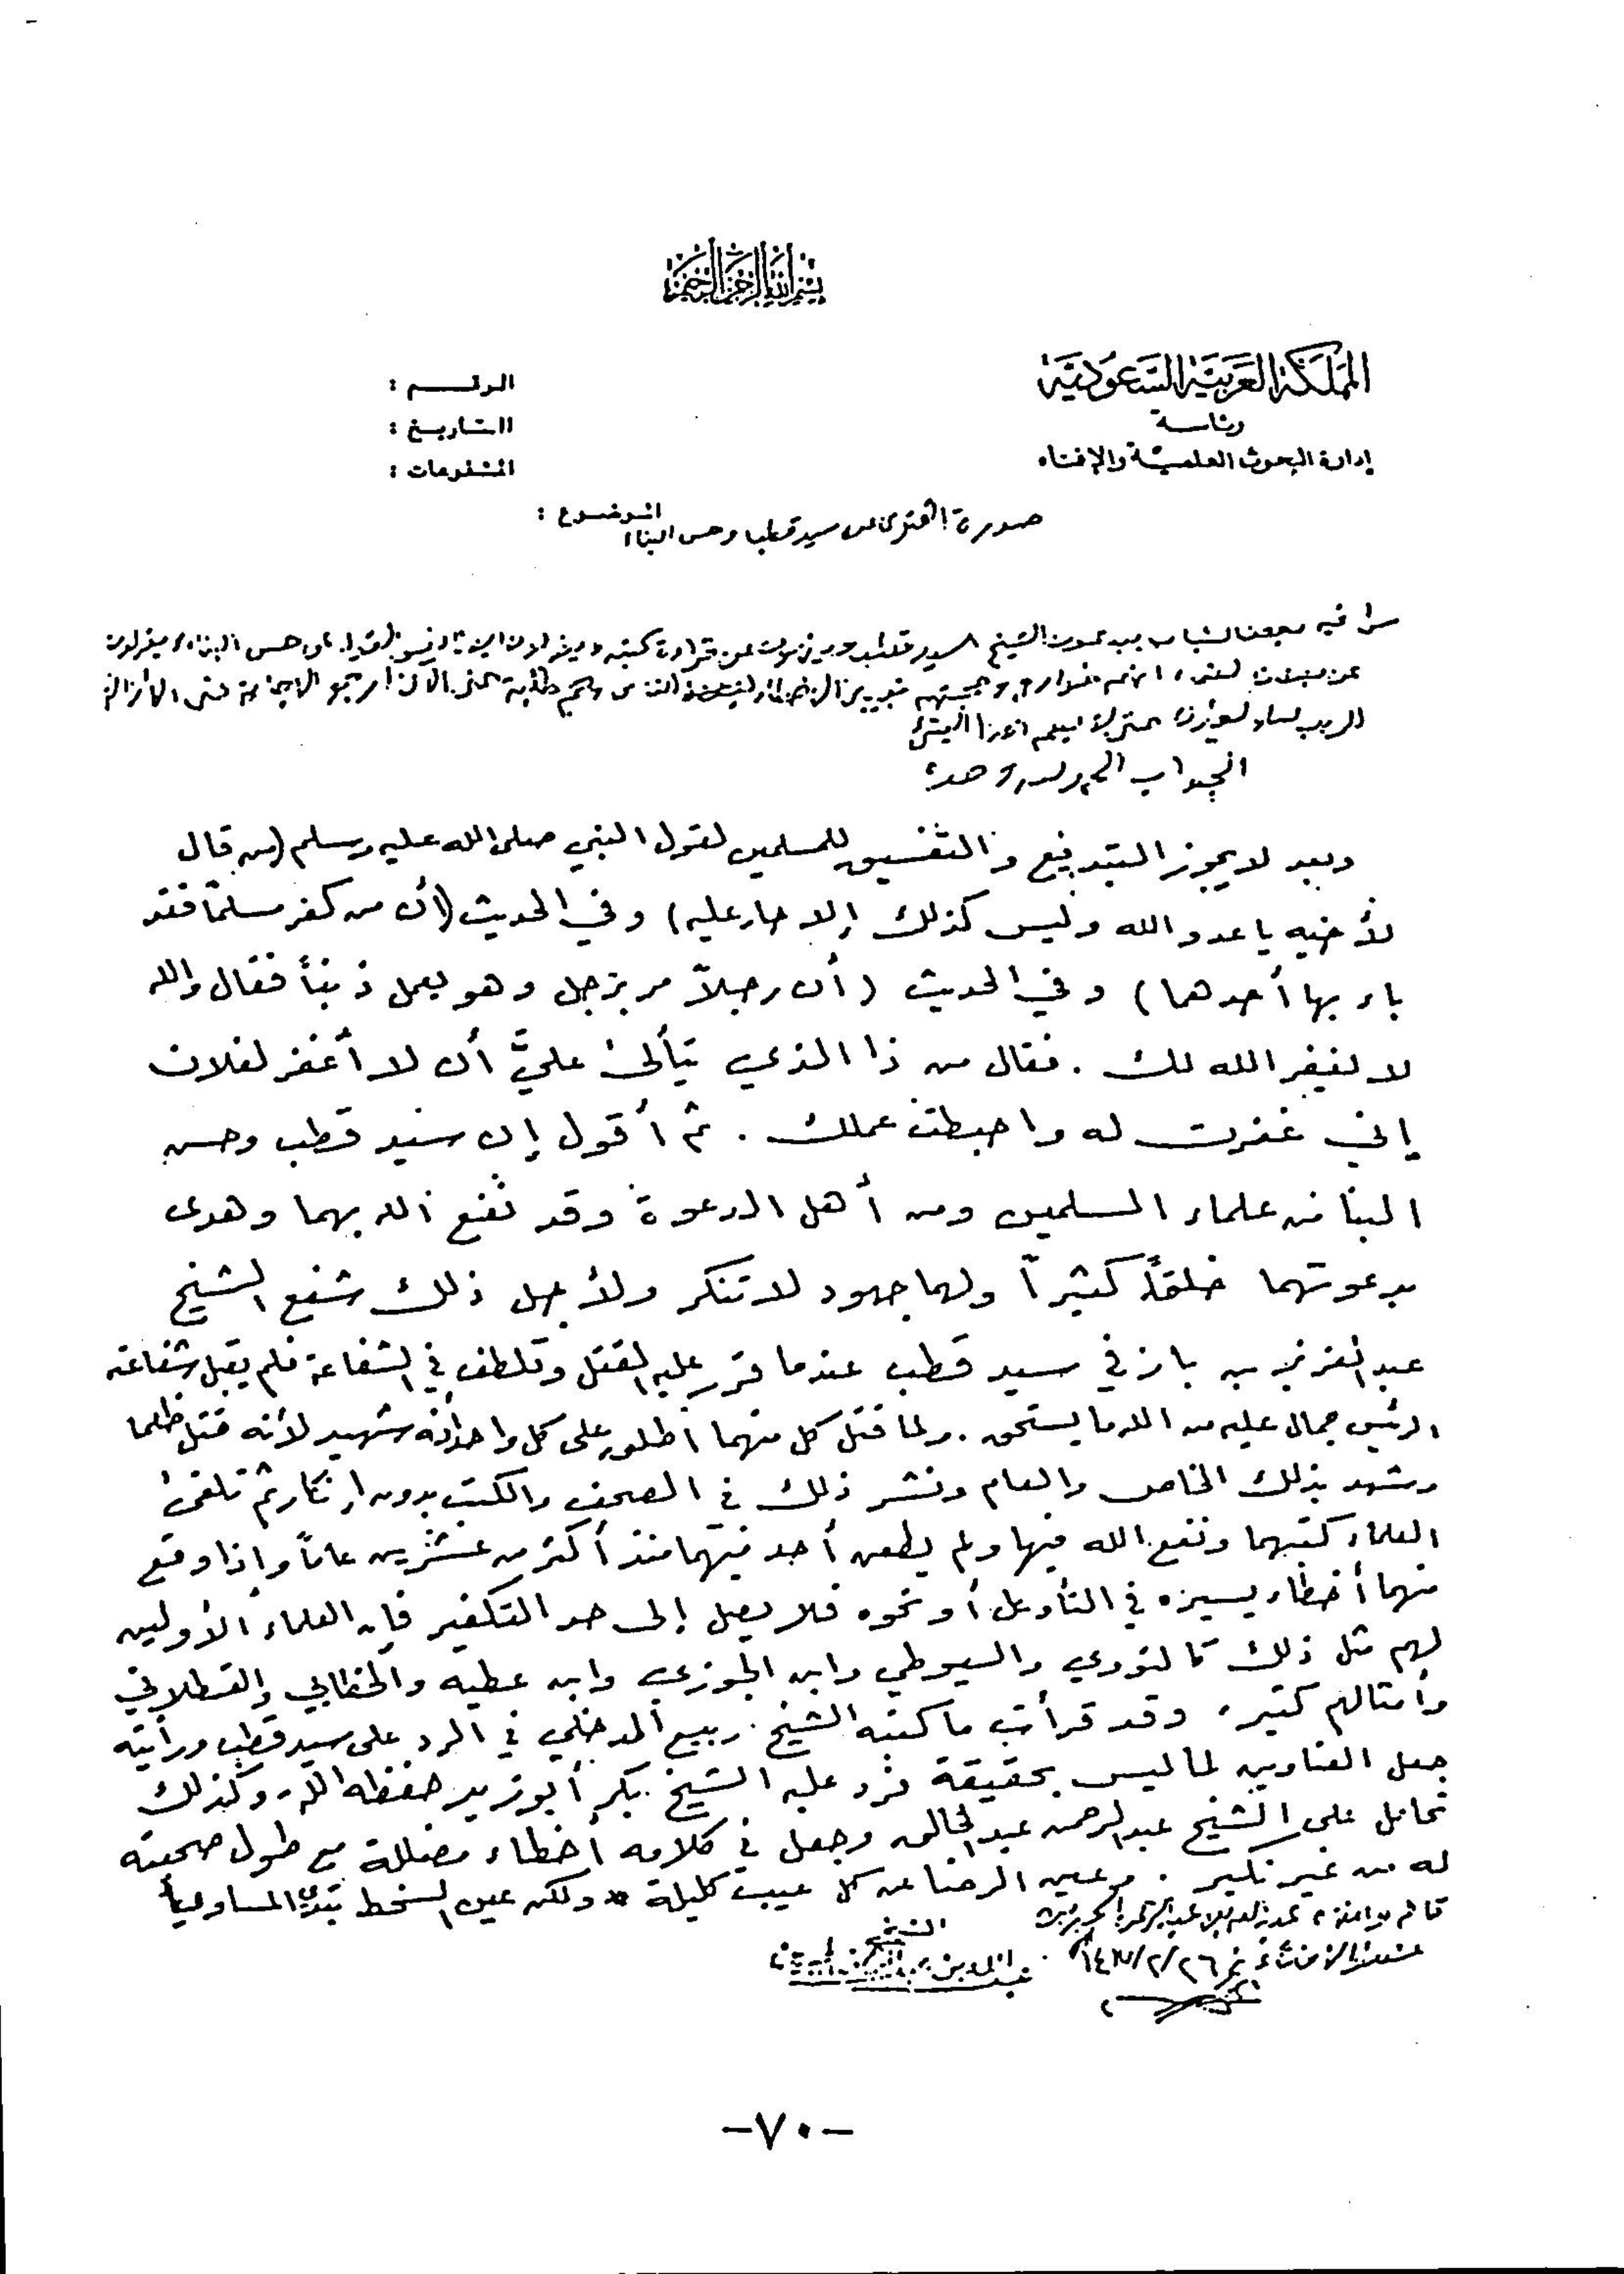 بسم الله الرحمن الرحيم
المملكة العربية السعودية
رئاسة
إدارة البحوث العلمية والإفتاء
الرقم :
التاريخ :
المشفوعات :
الموضوع :
صورة الفتوى عن سيد قطب وحسن البنا
س/ فيه بعض الشباب يبدعون الشيخ السيد قطب وينهون عن قراءة كتبه ويقولون أيضا نفس القول عن حسن البنا ويقولون
عن بعض العلماء انهم خوارج وحجتهم تبيين الأخطاء للناس وهم طلبة حتى الآن أرجو الإجابة حتى
الريب لنا ولغيرنا حتى لا يعم هذا الشيء
الجواب الحمد لله وحده
وبعد لا يجوز التبديع والتفسيق للمسلمين لقول النبي صلى الله عليه وسلم (من قال
لأخيه يا عدو الله وليس كذلك إلا حار عليه) وفي الحديث (أن من كفر مسلماً فقد
باء بها أحدهما) وفي الحديث (أن رجلاً مر برجل وهو يعمل ذنباً فقال والله
لا يغفر الله لك . فقال من ذا الذي يتألى عليَّ أن لا أغفر لفلان
إني غفرت له وأحبطت عملك . ثم أقول إن سيد قطب وحسن
البنا من علماء المسلمين ومن أهل الدعوة وقد نفع الله بهما وهدى
بدعوتهما خلقاً كثيراً ولهما جهود لا تنكر ولأجل ذلك شفع الشيخ
عبد العزيز بن باز في سيد قطب عندما قرر عليه القتل وتلطف في الشفاعة فلم يقبل شفاعته
الرئيس جمال عليه من الله ما يستحق . ولما قتل كل منهما أطلق على كل واحد أنه شهيد لأنه قتل ظلما
وشهد بذلك الخاص والعام ونشر ذلك في الصحف والكتب بدون إنكار ثم تلقى
العلماء كتبهما ونفع الله فيها ولم يطعن أحد فيهما منذ أكثر من عشرين عاماً وإذا وقع
منهما أخطاء يسيرة في التأويل أو نحوه فلا يصل إلى حد التكفير فإن العلماء الأولين
لهم مثل ذلك كالنووي والسيوطي وابن الجوزي وابن عطيه والخطابي والقسطلاني
وأمثالهم كثير . وقد قرأت ما كتبه الشيخ ربيع المدخلي في الرد على سيد قطب ورأيته
جعل العناوين لما ليس بحقيقة فرد عليه الشيخ بكر أبو زيد حفظه الله . وكذلك
تحامل على الشيخ عبد الرحمن عبد الخالق وجعل في كلامه أخطاء مضللة مع طول صحبته
له من غير نكير . وعين الرضا عن كل عيب كليلة * ولكن عين السخط تبدي المساويا
قاله وأملاه عبد الله بن عبد الرحمن الجبرين
عضو الإفتاء في ٢٦/٢/١٤١٧
الشيخ
عبد الله بن عبد الرحمن الجبرين
-٧٠-